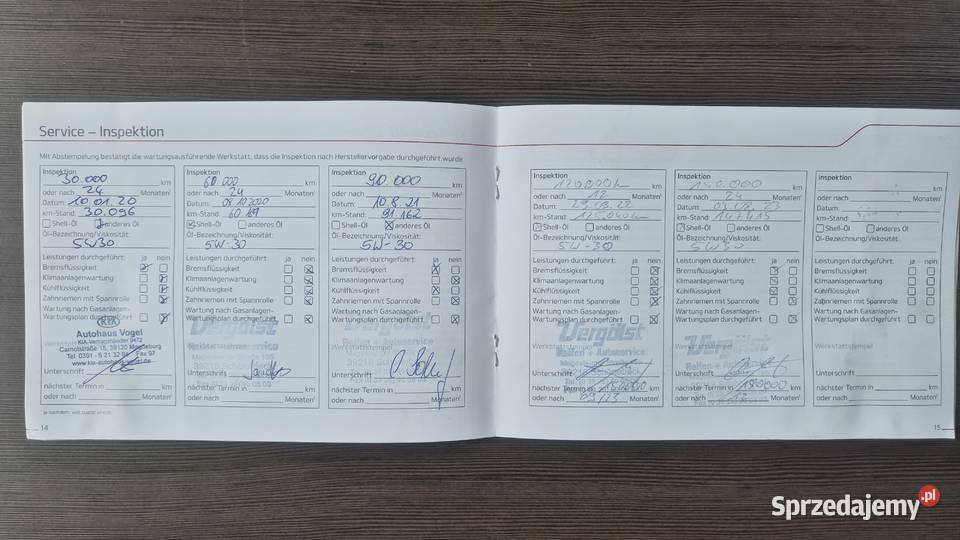 Service – Inspektion
Mit Abstempelung bestätigt die wartungsausführende Werkstatt, dass die Inspektion nach Herstellervorgabe durchgeführt wurde.
Inspektion
30.000 km
oder nach 24 Monaten
Datum: 10.01.20
km-Stand: 30.096
Shell-Öl anderes Öl
Öl-Bezeichnung/Viskosität:
5W30
Leistungen durchgeführt: ja nein
Bremsflüssigkeit
Klimaanlagenwartung
Kühlflüssigkeit
Zahnriemen mit Spannrolle
Wartung nach Gasanlagen-
Wartungsplan durchgeführt
KIA
Autohaus Vogel
KIA-Vertragshändler
39120 Magdeburg
Unterschrift
nächster Termin in km
oder nach Monaten
Inspektion
60 000 km
oder nach 24 Monaten
Datum: 08.10.2020
km-Stand:
Shell-Öl anderes Öl
Öl-Bezeichnung/Viskosität:
5W-30
Leistungen durchgeführt: ja nein
Bremsflüssigkeit
Klimaanlagenwartung
Kühlflüssigkeit
Zahnriemen mit Spannrolle
Wartung nach Gasanlagen-
Wartungsplan durchgeführt
Vergölst
Reifen + Autoservice
Unterschrift
nächster Termin in km
oder nach Monaten
Inspektion
90 000 km
oder nach Monaten
Datum: 10.8.21
km-Stand: 91.162
Shell-Öl anderes Öl
Öl-Bezeichnung/Viskosität:
5W-30
Leistungen durchgeführt: ja nein
Bremsflüssigkeit
Klimaanlagenwartung
Kühlflüssigkeit
Zahnriemen mit Spannrolle
Wartung nach Gasanlagen-
Wartungsplan durchgeführt
Werkstattstempel
Unterschrift
nächster Termin in km
oder nach Monaten
14
Inspektion
120000 km
oder nach 12 Monaten
Datum: 29.08.22
km-Stand: 125.040
Shell-Öl anderes Öl
Öl-Bezeichnung/Viskosität:
5W-30
Leistungen durchgeführt: ja nein
Bremsflüssigkeit
Klimaanlagenwartung
Kühlflüssigkeit
Zahnriemen mit Spannrolle
Wartung nach Gasanlagen-
Wartungsplan durchgeführt
Vergölst
Werkstattstempel
Reifen + Autoservice
Unterschrift
nächster Termin in km
oder nach 09/23 Monaten
Inspektion
150.000 km
oder nach 24 Monaten
Datum: 03.08.23
km-Stand: 147415
Shell-Öl anderes Öl
Öl-Bezeichnung/Viskosität:
5W30
Leistungen durchgeführt: ja nein
Bremsflüssigkeit
Klimaanlagenwartung
Kühlflüssigkeit
Zahnriemen mit Spannrolle
Wartung nach Gasanlagen-
Wartungsplan durchgeführt
Vergölst
Reifen + Autoservice
Unterschrift
nächster Termin in 180000 km
oder nach 12 Monaten
Inspektion
km
oder nach Monaten
Datum:
km-Stand:
Shell-Öl anderes Öl
Öl-Bezeichnung/Viskosität:
Leistungen durchgeführt: ja nein
Bremsflüssigkeit
Klimaanlagenwartung
Kühlflüssigkeit
Zahnriemen mit Spannrolle
Wartung nach Gasanlagen-
Wartungsplan durchgeführt
Werkstattstempel
Unterschrift
nächster Termin in km
oder nach Monaten
15
Sprzedajemy.pl